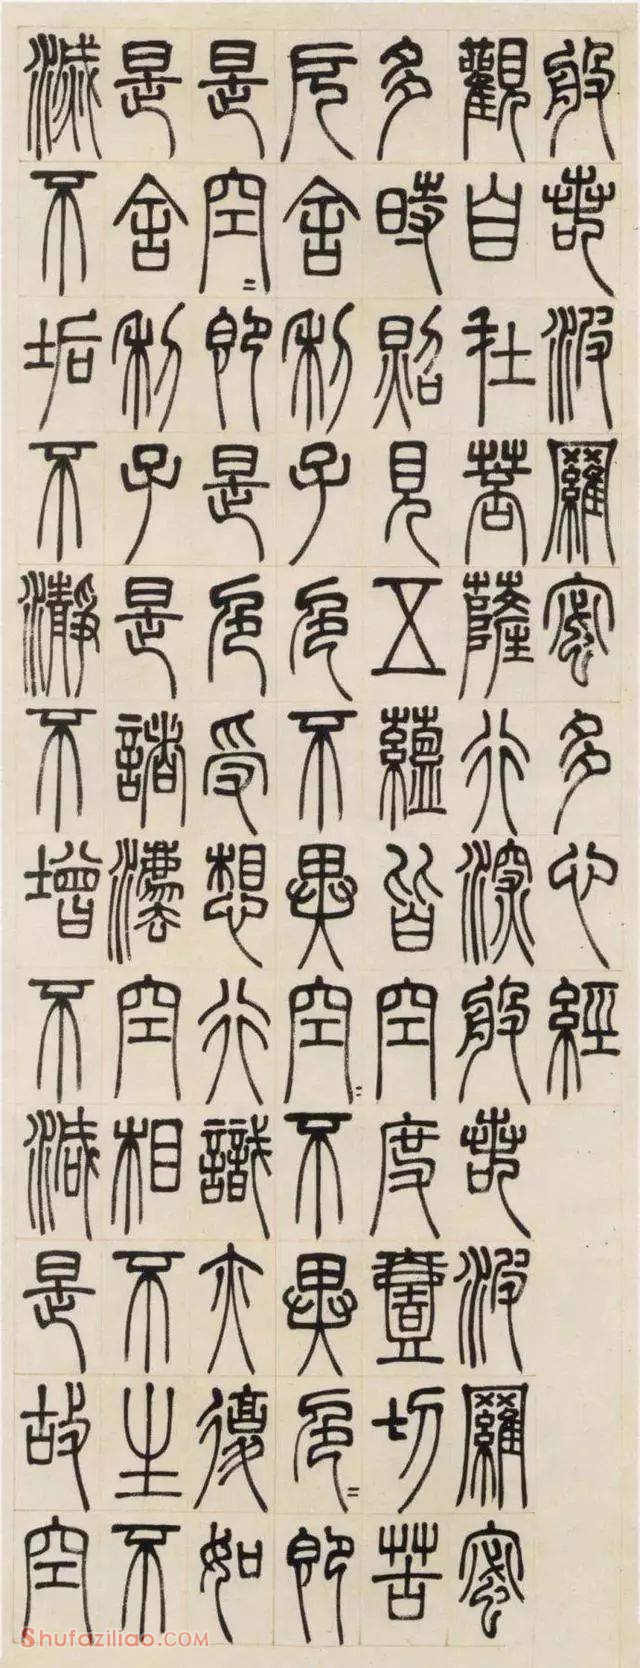 般若波羅蜜多心經
觀自在菩薩行深般若波羅蜜
多時照見五蘊皆空度壹切苦
厄舍利子色不異空〻不異色〻即
是空〻即是色受想行識亦復如
是舍利子是諸灋空相不生不
滅不垢不瀞不增不減是故空
Shufaziliao.COM